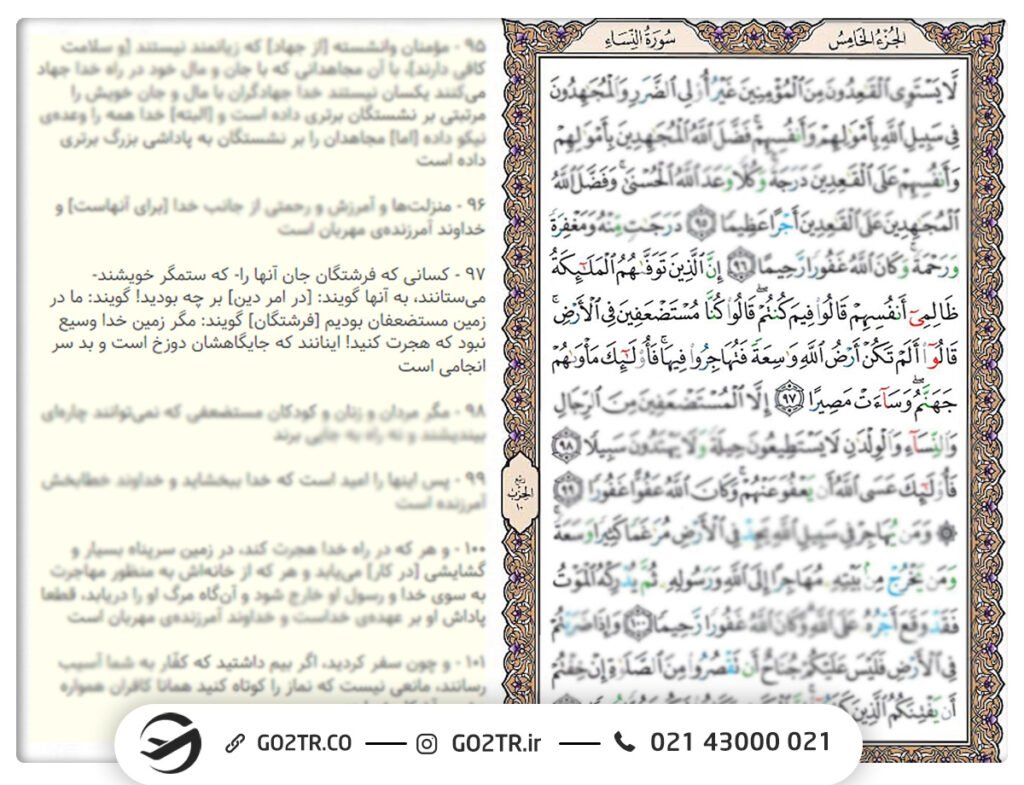 الجُزءُ الخَامِس
سُورَةُ النِّسَاء
لَّا يَسْتَوِى الْقَـٰعِدُونَ مِنَ الْمُؤْمِنِينَ غَيْرُ أُو۟لِى الضَّرَرِ وَالْمُجَـٰهِدُونَ
فِى سَبِيلِ اللَّهِ بِأَمْوَٰلِهِمْ وَأَنفُسِهِمْ ۚ فَضَّلَ اللَّهُ الْمُجَـٰهِدِينَ بِأَمْوَٰلِهِمْ
وَأَنفُسِهِمْ عَلَى الْقَـٰعِدِينَ دَرَجَةً ۚ وَكُلًّا وَعَدَ اللَّهُ الْحُسْنَىٰ ۚ وَفَضَّلَ اللَّهُ
الْمُجَـٰهِدِينَ عَلَى الْقَـٰعِدِينَ أَجْرًا عَظِيمًا ﴿٩٥﴾ دَرَجَـٰتٍ مِّنْهُ وَمَغْفِرَةً
وَرَحْمَةً ۚ وَكَانَ اللَّهُ غَفُورًا رَّحِيمًا ﴿٩٦﴾ إِنَّ الَّذِينَ تَوَفَّىٰهُمُ الْمَلَـٰٓئِكَةُ
ظَالِمِىٓ أَنفُسِهِمْ قَالُوا۟ فِيمَ كُنتُمْ ۖ قَالُوا۟ كُنَّا مُسْتَضْعَفِينَ فِى الْأَرْضِ ۚ
قَالُوٓا۟ أَلَمْ تَكُنْ أَرْضُ اللَّهِ وَٰسِعَةً فَتُهَاجِرُوا۟ فِيهَا ۚ فَأُو۟لَـٰٓئِكَ مَأْوَىٰهُمْ
جَهَنَّمُ ۖ وَسَآءَتْ مَصِيرًا ﴿٩٧﴾ إِلَّا الْمُسْتَضْعَفِينَ مِنَ الرِّجَالِ
وَالنِّسَآءِ وَالْوِلْدَٰنِ لَا يَسْتَطِيعُونَ حِيلَةً وَلَا يَهْتَدُونَ سَبِيلًا ﴿٩٨﴾
فَأُو۟لَـٰٓئِكَ عَسَى اللَّهُ أَن يَعْفُوَ عَنْهُمْ ۚ وَكَانَ اللَّهُ عَفُوًّا غَفُورًا ﴿٩٩﴾
۞ وَمَن يُهَاجِرْ فِى سَبِيلِ اللَّهِ يَجِدْ فِى الْأَرْضِ مُرَٰغَمًا كَثِيرًا وَسَعَةً ۚ
وَمَن يَخْرُجْ مِنۢ بَيْتِهِۦ مُهَاجِرًا إِلَى اللَّهِ وَرَسُولِهِۦ ثُمَّ يُدْرِكْهُ الْمَوْتُ
فَقَدْ وَقَعَ أَجْرُهُۥ عَلَى اللَّهِ ۗ وَكَانَ اللَّهُ غَفُورًا رَّحِيمًا ﴿١٠٠﴾ وَإِذَا ضَرَبْتُمْ
فِى الْأَرْضِ فَلَيْسَ عَلَيْكُمْ جُنَاحٌ أَن تَقْصُرُوا۟ مِنَ الصَّلَوٰةِ إِنْ خِفْتُمْ
أَن يَفْتِنَكُمُ الَّذِينَ
ربع
الحزب
١٠
۹۵ - مؤمنان وانشسته [از جهاد] که زیانمند نیستند [و سلامت
کافی دارند]، با آن مجاهدانی که با جان و مال خود در راه خدا جهاد
می‌کنند یکسان نیستند خدا جهادگران با مال و جان خویش را
مرتبتی بر نشستگان برتری داده است و [البته] خدا همه را وعده‌ی
نیکو داده [اما] مجاهدان را بر نشستگان به پاداشی بزرگ برتری
داده است
۹۶ - منزلت‌ها و آمرزش و رحمتی از جانب خدا [برای آنهاست] و
خداوند آمرزنده‌ی مهربان است
۹۷ - کسانی که فرشتگان جان آنها را- که ستمگر خویشند-
می‌ستانند، به آنها گویند: [در امر دین] بر چه بودید! گویند: ما در
زمین مستضعفان بودیم [فرشتگان] گویند: مگر زمین خدا وسیع
نبود که هجرت کنید! اینانند که جایگاهشان دوزخ است و بد سر
انجامی است
۹۸ - مگر مردان و زنان و کودکان مستضعفی که نمی‌توانند چاره‌ای
بیندیشند و نه راه به جایی برند
۹۹ - پس اینها را امید است که خدا ببخشاید و خداوند خطابخش
آمرزنده است
۱۰۰ - و هر که در راه خدا هجرت کند، در زمین سرپناه بسیار و
گشایشی [در کار] می‌یابد و هر که از خانه‌اش به منظور مهاجرت
به سوی خدا و رسول او خارج شود و آن‌گاه مرگ او را دریابد، قطعا
پاداش او بر عهده‌ی خداست و خداوند آمرزنده‌ی مهربان است
۱۰۱ - و چون سفر کردید، اگر بیم داشتید که کفّار به شما آسیب
رسانند، مانعی نیست که نماز را کوتاه کنید همانا کافران همواره
GO2TR.CO — GO2TR.ir — 021 43000 021